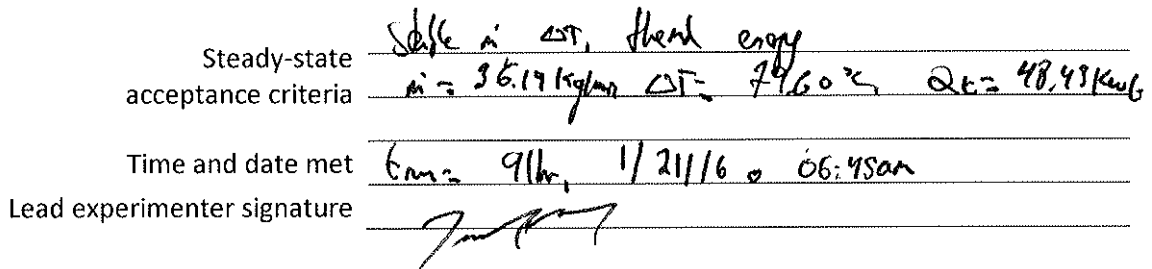 Steady-state
acceptance criteria
Stable ṁ ΔT, thermal energy
ṁ = 36.19 kg/min ΔT = 79.60 °C, Qt =
Time and date met
1/21/16 06:45am
Lead experimenter signature